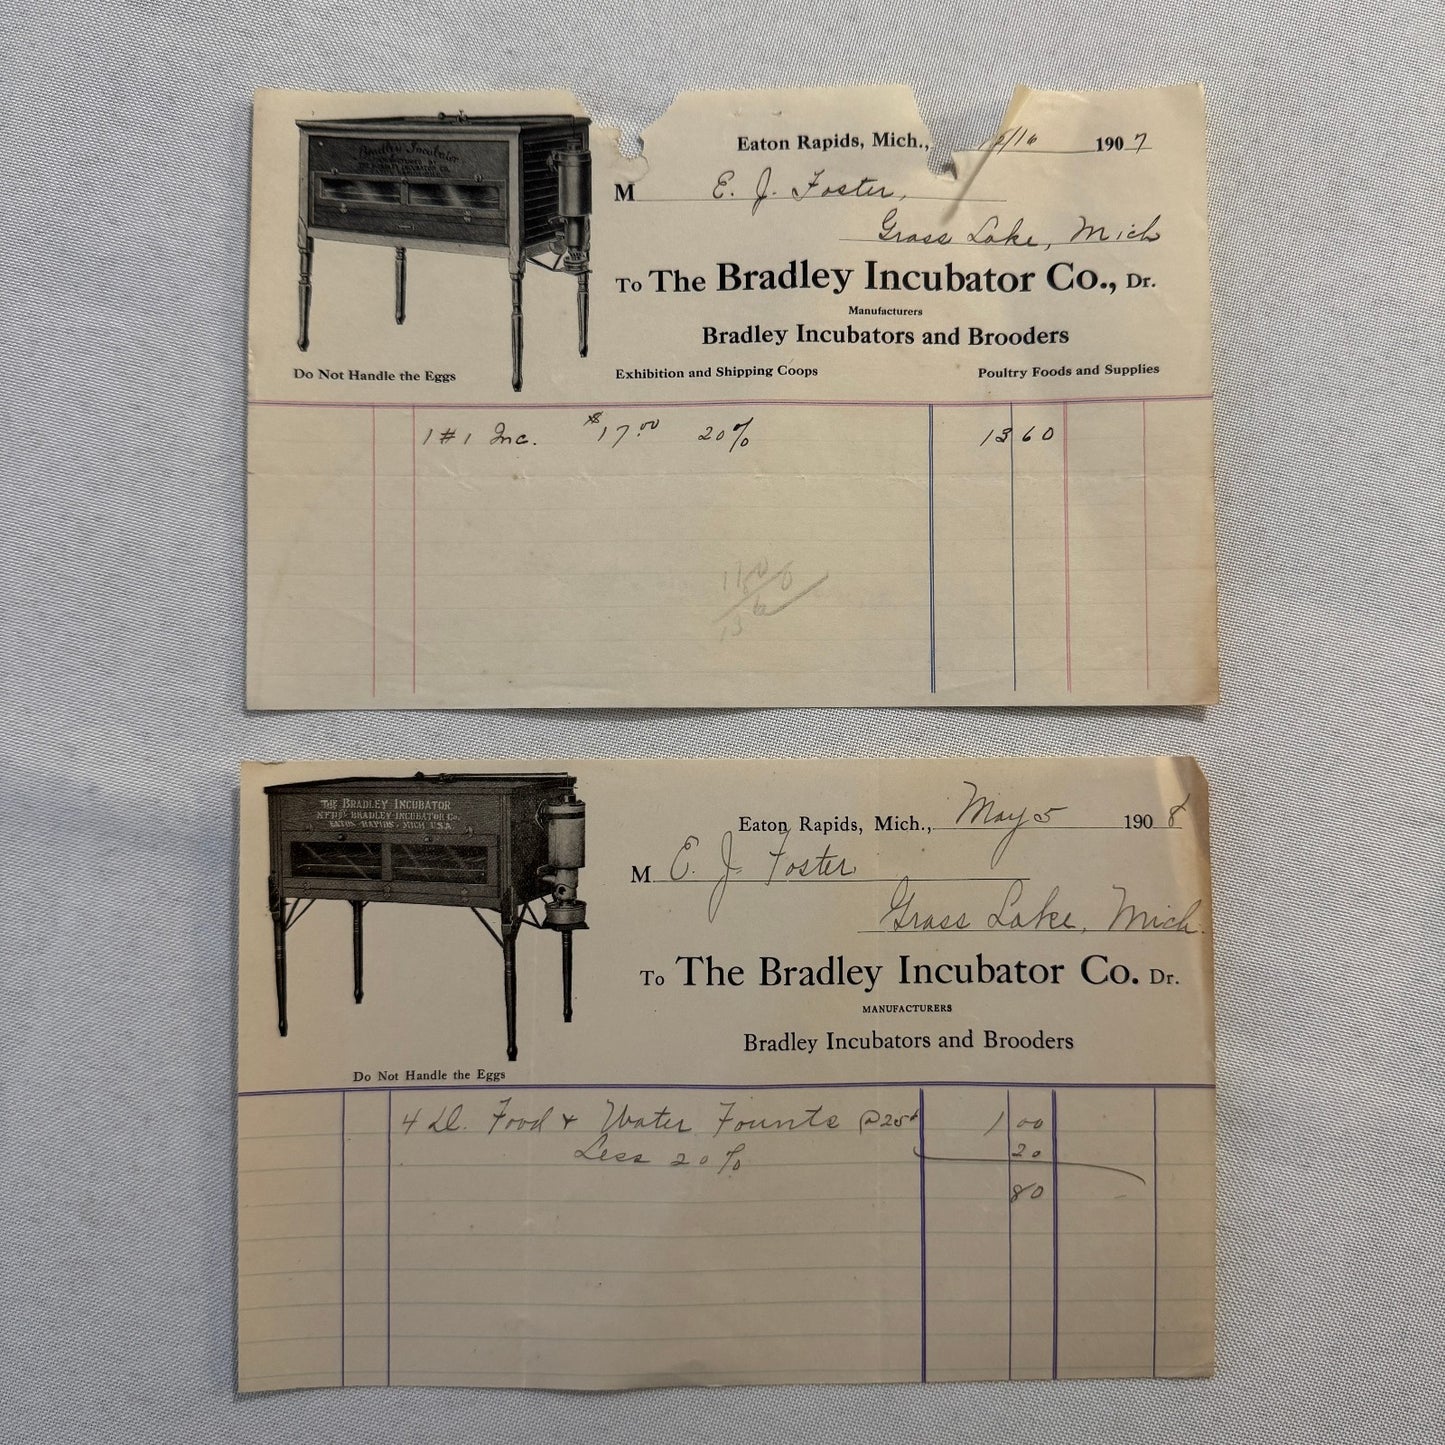 Bradley Incubator
Do Not Handle the Eggs
Eaton Rapids, Mich., 2/16 1907
M E. J. Foster,
Grass Lake, Mich
To The Bradley Incubator Co., Dr.
Manufacturers
Bradley Incubators and Brooders
Exhibition and Shipping Coops Poultry Foods and Supplies
1 #1 Inc. $17.00 20% 13 60
THE BRADLEY INCUBATOR
M'F'D BY BRADLEY INCUBATOR CO.
EATON RAPIDS, MICH. U.S.A.
Do Not Handle the Eggs
Eaton Rapids, Mich., May 5 1908
M E. J. Foster
Grass Lake, Mich.
To The Bradley Incubator Co. Dr.
MANUFACTURERS
Bradley Incubators and Brooders
4 Food & Water Founts @ 25¢ 1 00
Less 20% 20
80